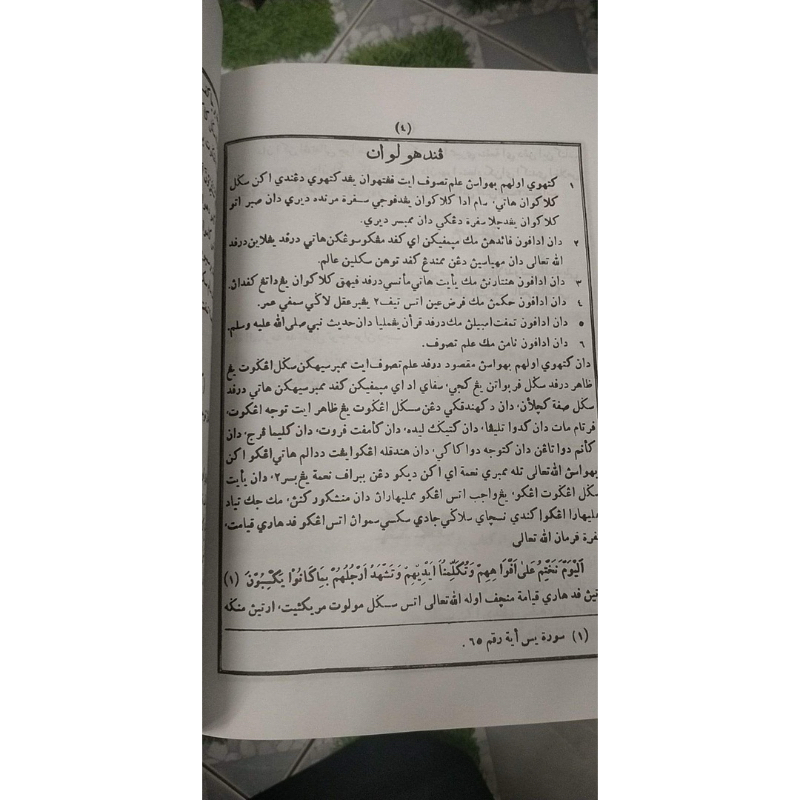 (٤)
ڤندهولوان
١ كتهوي اولهم بهواسڽ علم تصوف ايت ڤڠتهوان يڠد كتهوي دڠندي اكن سڬل
كلاكوان هاتي، سام ادا كلاكوان يڠدڤوجي سڤرة مرنده ديري دان صبر اتو
كلاكوان يڠدچلا سڤرة دڠكي دان ممبسر ديري.
٢ دان اداڤون فائدهڽ مك مڽمڤيكن اي كڤد مڠكوسوڠكن هاتي درڤد يڠلاين درڤد
الله تعالى دان مهياسيڽ دڠن ممندڠ كڤد توهن سكلين عالم.
٣ دان اداڤون هنتارنڽ مك يأيت هاتي مأنسي درڤد ڤيهق كلاكوان يڠ داتڠ كڤداڽ.
٤ دان اداڤون حكمڽ مك فرض عين اتس تيڤ٢ يڠبرعقل لاكي سمڤي عمر.
٥ دان اداڤون تمڤت امبيلڽ مك درڤد قرآن يڠمليا دان حديث نبي صلى الله عليه وسلم.
٦ دان اداڤون نامڽ مك علم تصوف.
دان كتهوي اولهم بهواسڽ مقصود درڤد علم تصوف ايت ممبرسيهكن سڬل اڠڬوت يڠ
ظاهر درڤد سڬل ڤربواتن يڠ كجي، سڤاي اد اي مڽمڤيكن كڤد ممبرسيهكن هاتي درڤد
سڬل صفة كچلاأن، دان دكهندقكي دڠن سڬل اڠڬوت يڠ ظاهر ايت توجه اڠڬوت،
ڤرتام مات دان كدوا تليڠا، دان كتيݢ ليده، دان كأمڤت ڤروت، دان كليما فرج، دان
كأنم دوا تاڠن دان كتوجه دوا كاكي، دان هندقله اڠكوايڠت ددالم هاتي اڠكو اكن
بهواسڽ الله تعالى تله ممبري نعمة اي اكن ديكو دڠن ببراڤ نعمة يڠ بسر٢، دان يأيت
سڬل اڠڬوت اڠكو، يڠ واجب اتس اڠكو ممليهاراڽ دان منشكوركنڽ، مك جك تياد
مليهارا اڠكوا كندي نسچاي سلاكي جادي سكسي سمواڽ اتس اڠكو ڤد هاري قيامت،
سڤرة فرمان الله تعالى
اَلْيَوْمَ نَخْتِمُ عَلَى أَفْوَاهِهِمْ وَتُكَلِّمُنَا أَيْدِيهِمْ وَتَشْهَدُ أَرْجُلُهُمْ بِمَا كَانُوْا يَكْسِبُوْنَ (١)
رتيڽ ڤد هاري قيامة منچڤ اوله الله تعالى اتس سڬل مولوت مريكئيت، ارتيڽ منݢه
(١) سورة يس أية رقم ٦٥.